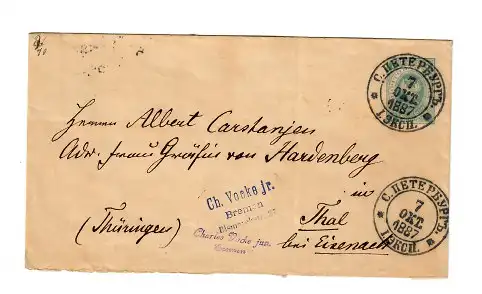 С.ПЕТЕРБУРГЪ
7
ОКТ.
1887
1.ЭКСП.
Herrn Albert Carstanjen
Adr. Frau Gräfin von Hardenberg
in
Thal
bei Eisenach
(Thüringen)
Ch. Vocke jr.
Bremen
Charles Vocke jun.
Bremen
С.ПЕТЕРБУРГЪ
7
ОКТ.
1887
1.ЭКСП.